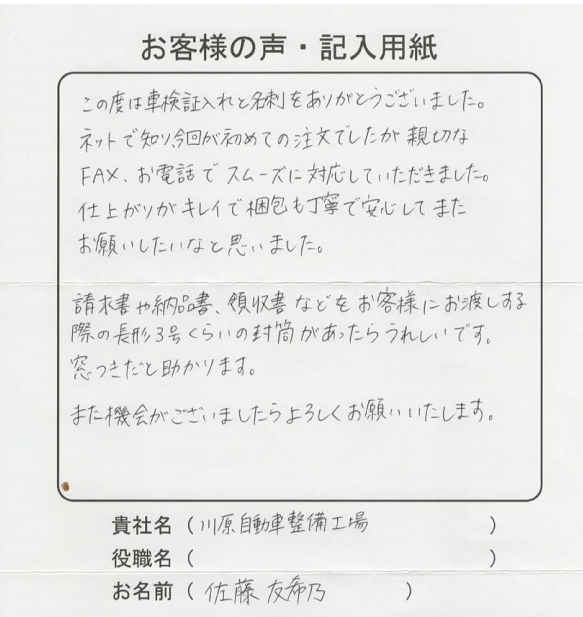 お客様の声・記入用紙
この度は車検証入れと名刺をありがとうございました。
ネットで知り、今回が初めての注文でしたが親切な
FAX、お電話でスムーズに対応していただきました。
仕上がりがキレイで梱包も丁寧で安心してまた
お願いしたいなと思いました。
請求書や納品書、領収書などをお客様にお渡しする
際の長形3号くらいの封筒があったらうれしいです。
窓つきだと助かります。
また機会がございましたらよろしくお願いいたします。
貴社名（川原自動車整備工場　）
役職名（　）
お名前（佐藤 友希乃　）